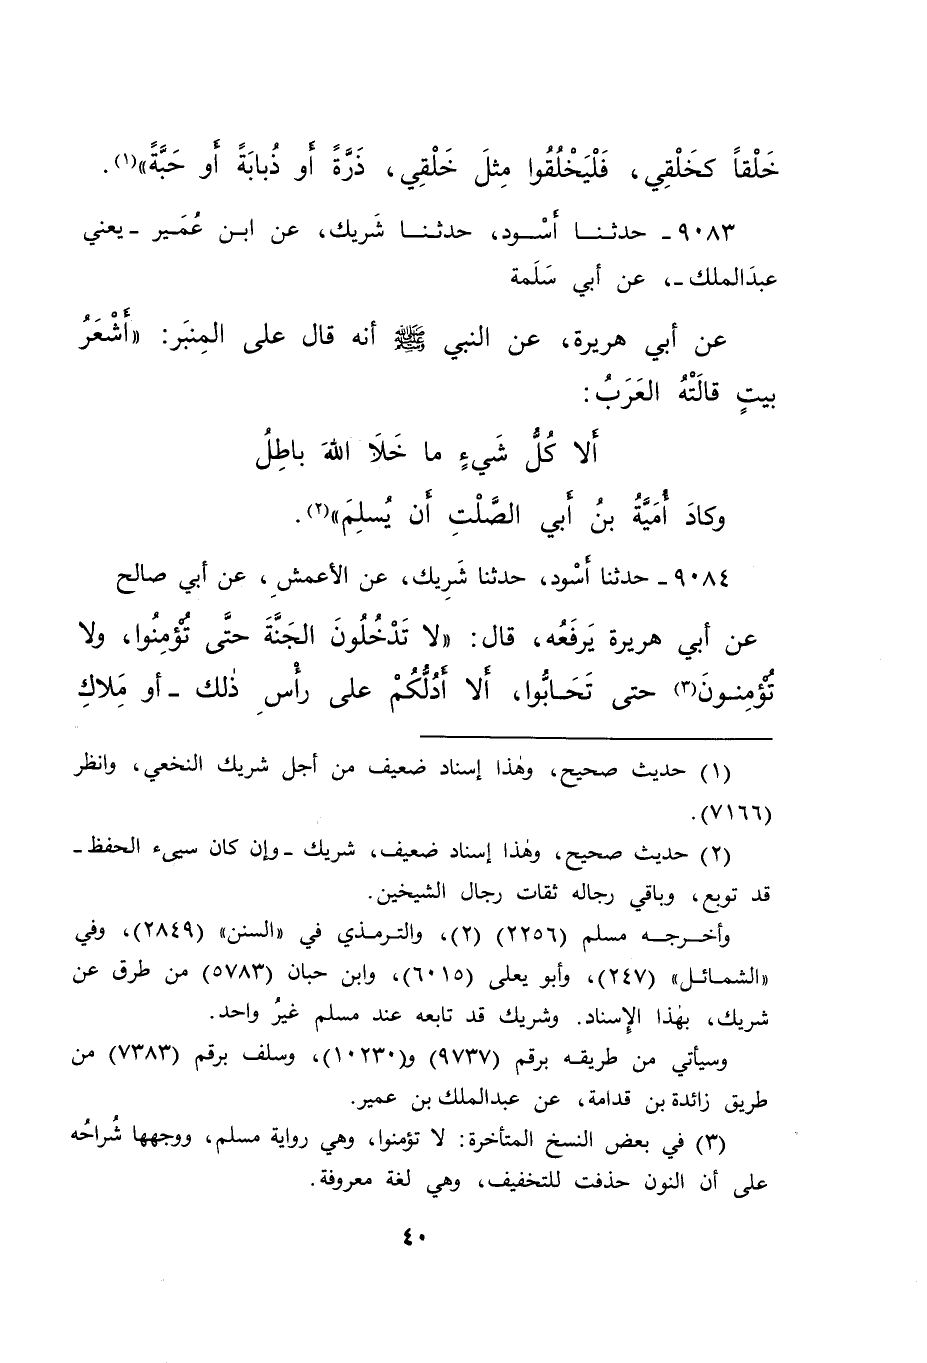 خَلْقاً كخَلْقِي، فَلْيَخْلُقُوا مِثلَ خَلْقِي، ذَرَّةً أَو ذُبابَةً أَو حَبَّةً»(١).
٩٠٨٣ـ حدثنـا أَسْـود، حدثنـا شَريك، عن ابـن عُمَـير ـ يعني
عبدَالملك ـ، عن أبي سَلَمة
عن أبي هريرة، عن النبي ﷺ أنه قال على المِنبَر: «أَشْعَرُ
بيتٍ قالَتْهُ العَرَبُ:
أَلا كُلُّ شَيءٍ ما خَلَا اللهَ باطِلُ
وكادَ أُمَيَّةُ بنُ أَبي الصَّلْتِ أَن يُسلِمَ»(٢).
٩٠٨٤ـ حدثنا أَسْود، حدثنا شَرِيك، عن الأعمشِ، عن أبي صالح
عن أبي هريرة يَرفَعُه، قال: «لا تَدْخُلُونَ الجَنَّةَ حتَّى تُؤْمِنُوا، ولا
تُؤْمِنـونَ(٣) حتى تَحَـابُّوا، أَلا أَدُلُّكُمْ على رأْسِ ذٰلك ـ أو مَِلاكِ
(١) حديث صحيح، وهٰذا إسناد ضعيف من أجل شريك النخعي، وانظر
(٧١٦٦).
(٢) حديث صحيح، وهٰذا إسناد ضعيف، شريك ـ وإن كان سيىء الحفظ ـ
قد توبع، وباقي رجاله ثقات رجال الشيخين.
وأخـرجـه مسلم (٢٢٥٦) (٢)، والترمـذي في «السنن» (٢٨٤٩)، وفي
«الشمـائـل» (٢٤٧)، وأبو يعلى (٦٠١٥)، وابن حبان (٥٧٨٣) من طرق عن
شريك، بهٰذا الإسناد. وشريك قد تابعه عند مسلم غيرُ واحد.
وسيأتي من طريقـه برقم (٩٧٣٧) و(١٠٢٣٠)، وسلف برقم (٧٣٨٣) من
طريق زائدة بن قدامة، عن عبدالملك بن عمير.
(٣) في بعض النسخ المتأخرة: لا تؤمنوا، وهي رواية مسلم، ووجهها شُراحُه
على أن النون حذفت للتخفيف، وهي لغة معروفة.
٤٠